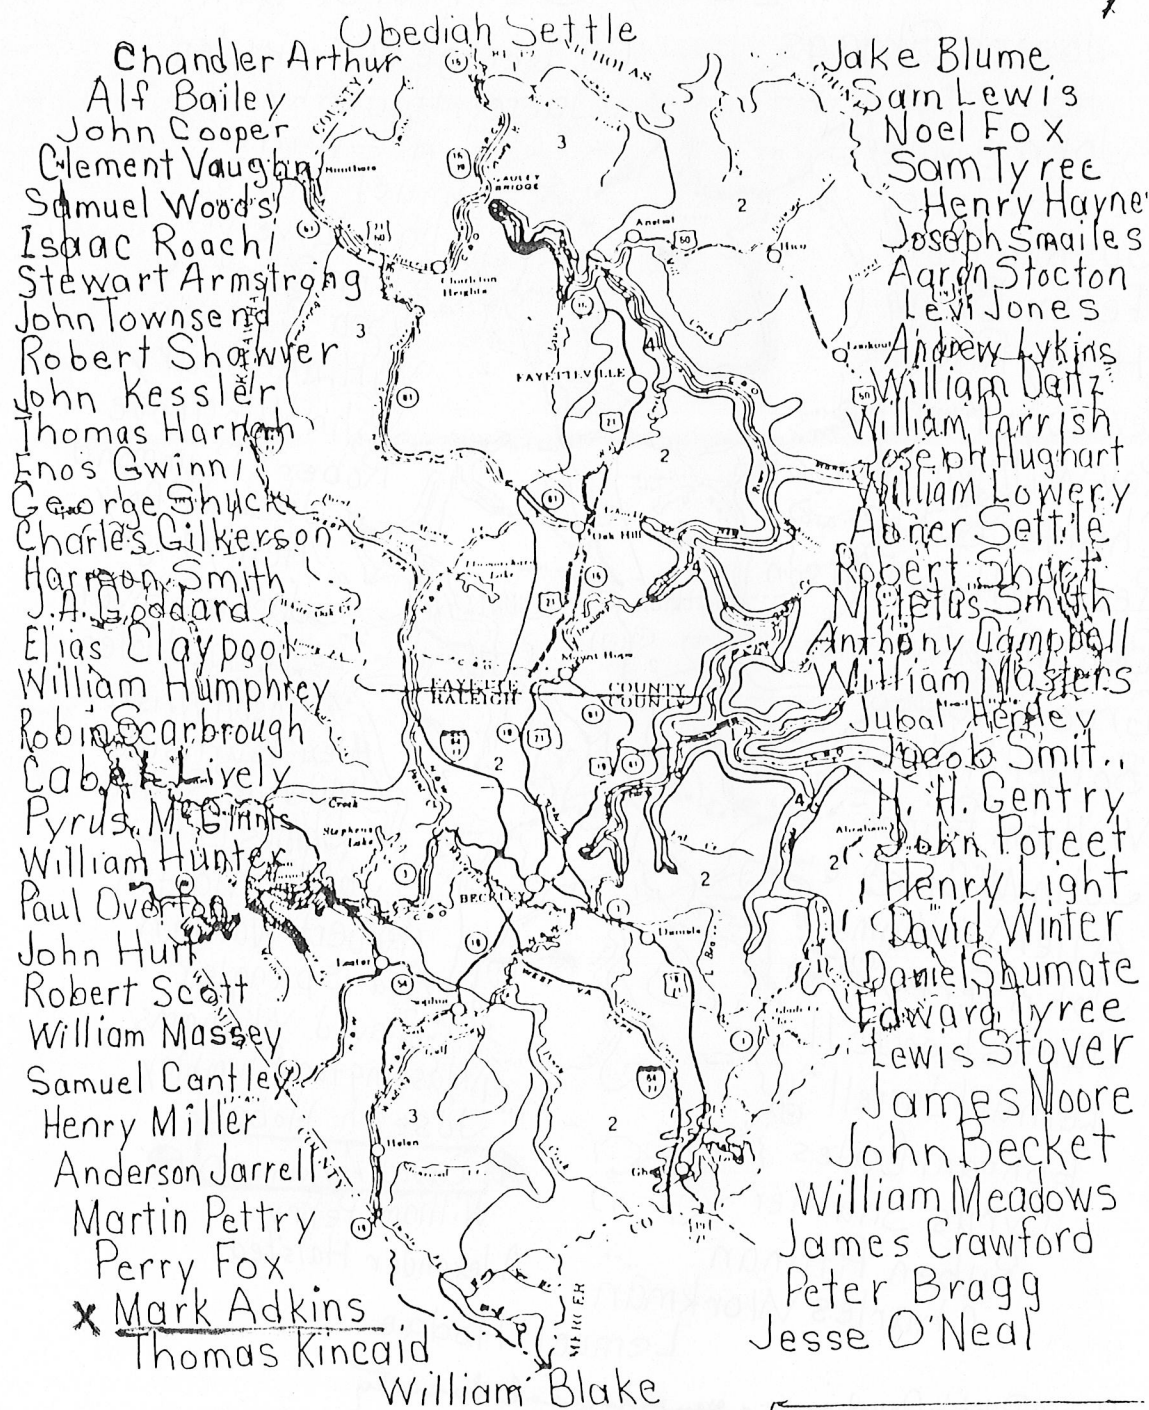 Obediah Settle
Chandler Arthur
Alf Bailey
John Cooper
Clement Vaughn
Samuel Woods
Isaac Roach
Stewart Armstrong
John Townsend
Robert Shawver
John Kessler
Thomas Harrah
Enos Gwinn
George Shuck
Charles Gilkerson
Harrison Smith
J.A. Goddard
Elias Claypool
William Humphrey
Robin Scarbrough
Cabel Lively
Pyrus McGinnis
William Hunter
Paul Overton
John Hurt
Robert Scott
William Massey
Samuel Cantley
Henry Miller
Anderson Jarrell
Martin Pettry
Perry Fox
X Mark Adkins
Thomas Kincaid
William Blake
Jake Blume
Sam Lewis
Noel Fox
Sam Tyree
Henry Hayne
Joseph Smailes
Aaron Stocton
Levi Jones
Andrew Lykins
William Dantz
William Parrish
Joseph Hughart
William Lowery
Abner Settle
Robert Short
Miletus Smith
Anthony Campbell
William Masters
Jubal Henley
Jacob Smit
H. H. Gentry
John Poteet
Henry Light
David Winter
Daniel Shumate
Edward Tyree
Lewis Stover
James Moore
John Becket
William Meadows
James Crawford
Peter Bragg
Jesse O'Neal
COUNTY
3
2
BRIDGE
Ansted
60
Charlton
Heights
3
61
4
FAYETTEVILLE
21
2
61
Oak Hill
16
21
Mount Hope
FAYETTE COUNTY
RALEIGH COUNTY
61
2
Creek
Stephens
Lake
4
2
2
3
BECKLEY
Daniels
Lester
54
WEST VA
3
2
Helen
16
MERCER
CO